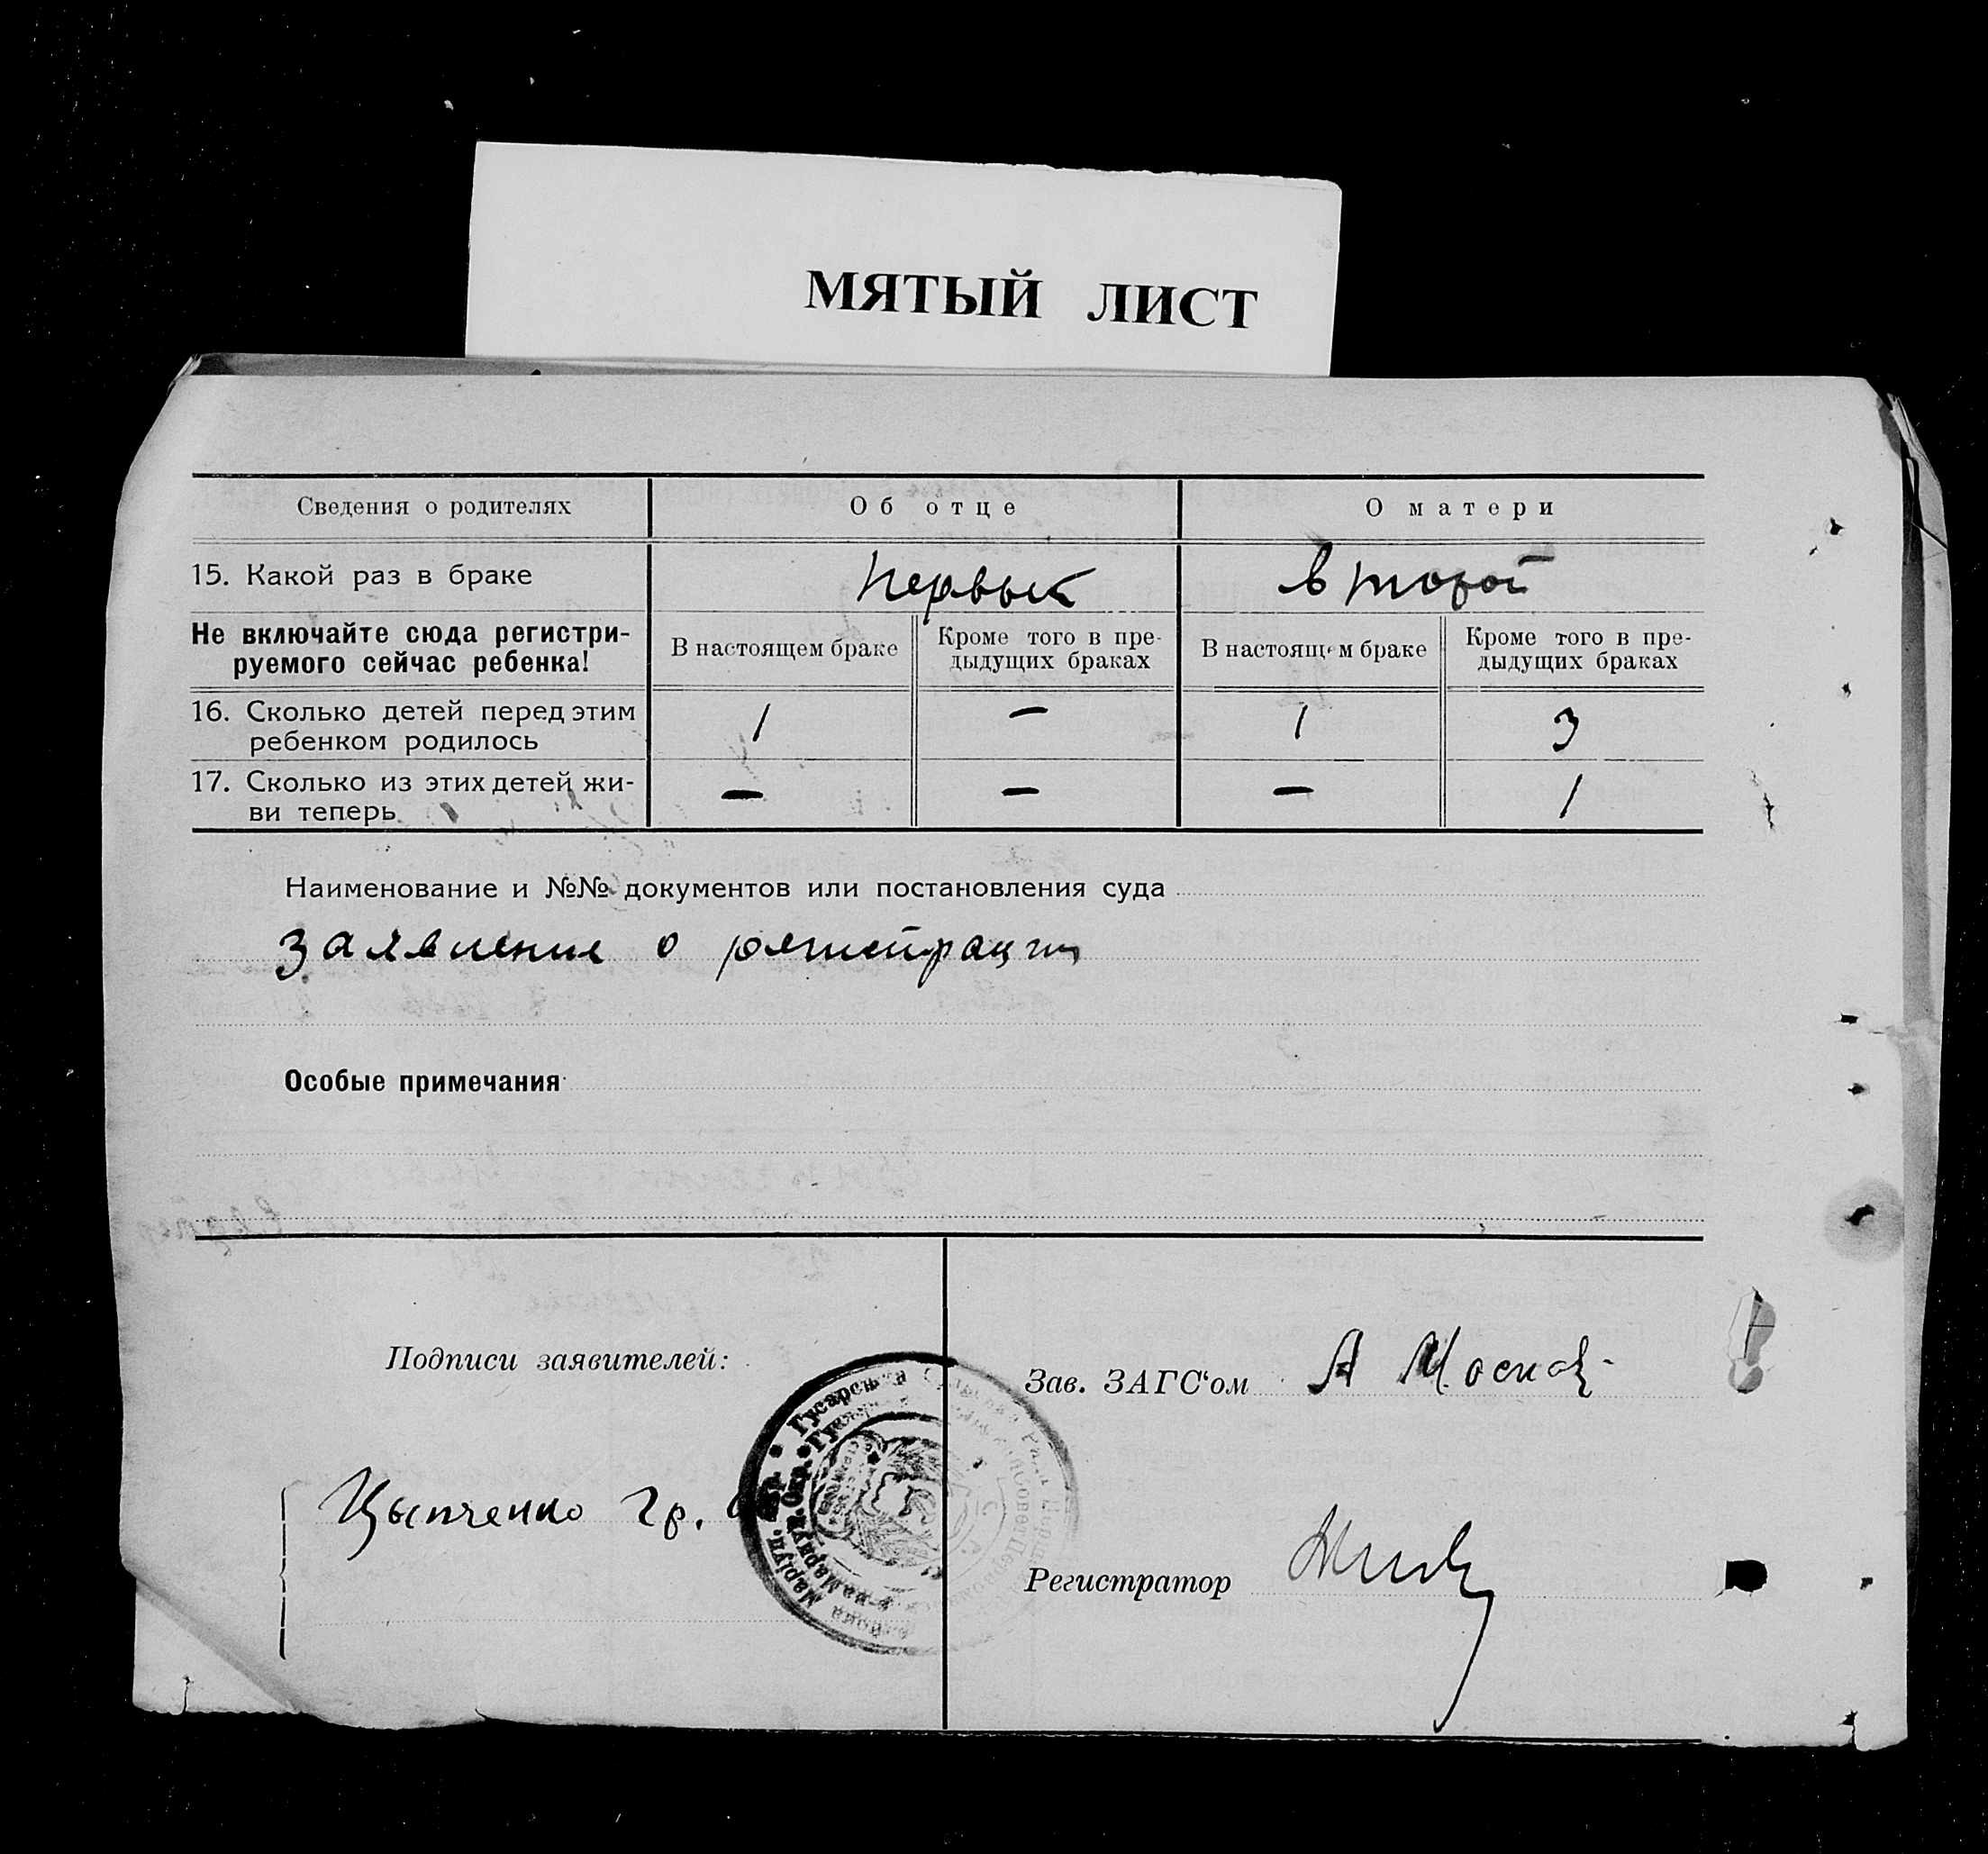 МЯТЫЙ ЛИСТ
Сведения о родителях
Об отце
О матери
15. Какой раз в браке
первый
второй
Не включайте сюда регистри-
руемого сейчас ребенка!
В настоящем браке
Кроме того в пре-
дыдущих браках
В настоящем браке
Кроме того в пре-
дыдущих браках
16. Сколько детей перед этим
ребенком родилось
1
—
1
3
17. Сколько из этих детей жи-
ви теперь
—
—
—
1
Наименование и №№ документов или постановления суда
заявление о регистрации
Особые примечания
Подписи заявителей:
Зав. ЗАГС‘ом А
Цыпченко Гр.
Регистратор
Гусарська
Маріуп. Окр.